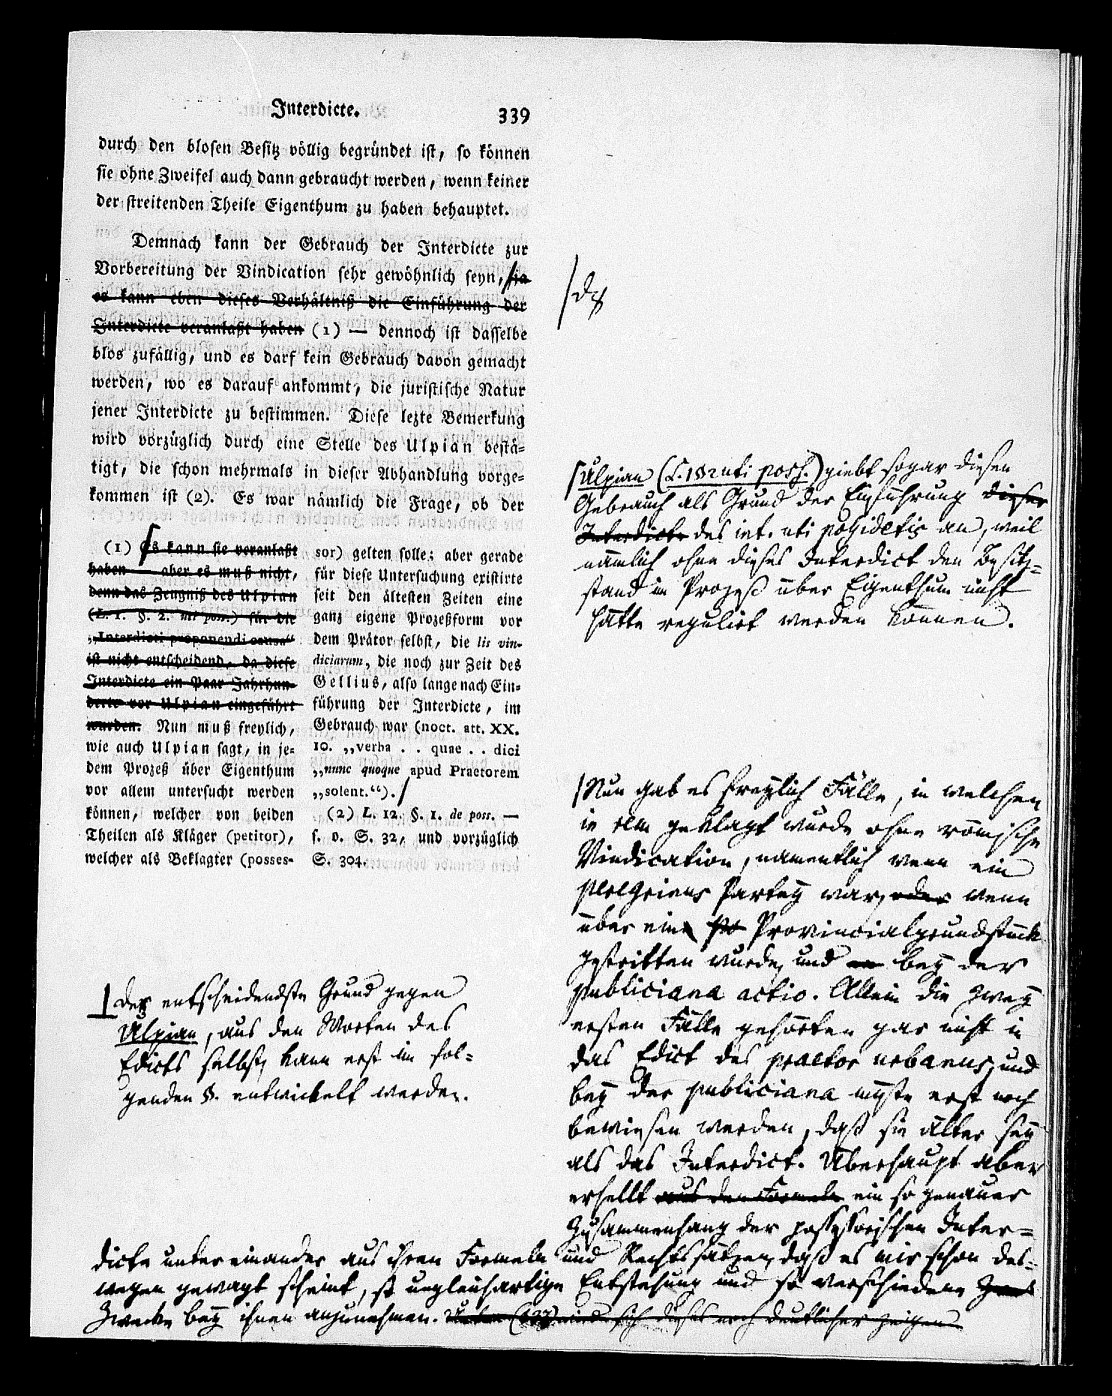 Interdicte. 339
durch den blosen Besitz völlig begründet ist, so können
sie ohne Zweifel auch dann gebraucht werden, wenn keiner
der streitenden Theile Eigenthum zu haben behauptet.
Demnach kann der Gebrauch der Interdicte zur
Vorbereitung der Vindication sehr gewöhnlich seyn, ja
es kann eben dieses Verhältniß die Einführung der
Interdicte veranlaßt haben (1) — dennoch ist dasselbe
blos zufällig, und es darf kein Gebrauch davon gemacht
werden, wo es darauf ankommt, die juristische Natur
jener Interdicte zu bestimmen. Diese lezte Bemerkung
wird vorzüglich durch eine Stelle des Ulpian bestä-
tigt, die schon mehrmals in dieser Abhandlung vorge-
kommen ist (2). Es war nämlich die Frage, ob der
(1) Es kann sie veranlaßt
haben — aber es muß nicht,
denn das Zeugniß des Ulpian
(L. 1. §. 2. uti poss.) für die
„Interdicti proponendi causa“
ist nicht entscheidend, da diese
Interdicte ein Paar Jahrhun-
derte vor Ulpian eingeführt
wurden. Nun muß freylich,
wie auch Ulpian sagt, in je-
dem Prozeß über Eigenthum
vor allem untersucht werden
können, welcher von beiden
Theilen als Kläger (petitor),
welcher als Beklagter (posses-
sor) gelten solle; aber gerade
für diese Untersuchung existirte
seit den ältesten Zeiten eine
ganz eigene Prozeßform vor
dem Prätor selbst, die lis vin-
diciarum, die noch zur Zeit des
Gellius, also lange nach Ein-
führung der Interdicte, im
Gebrauch war (noct. att. XX.
10. „verba . . quae . . dici
„nunc quoque apud Praetorem
„solent.“).
(2) L. 12. §. 1. de poss. —
s. o. S. 32, und vorzüglich
S. 304.
Ulpian (L. 1 § 2 uti poss.) giebt sogar diesen
Gebrauch als Grund der Einführung dieser
Interdicte des int. uti possidetis an, weil
nämlich ohne dieses Interdict den Besitz-
stand im Prozeß über Eigenthum nicht
hätte regulirt werden können.
Nun gab es freylich Fälle, in welchen
in rem geklagt wurde ohne römische
Vindication, namentlich wenn ein
peregrinus Parthey war, oder wenn
über ein Provincialgrundstück
gestritten wurde, und bey der
publiciana actio. Allein die zwey
ersten Fälle gehörten gar nicht in
das Edict des praetor urbanus, und
bey der publiciana müßte erst noch
bewiesen werden, daß sie älter sey
als das Interdict. Überhaupt aber
erhellt aus den Formeln ein so genauer
Zusammenhang der possessorischen Inter-
dicte unter einander aus ihren Formeln und Rechtssätzen, daß es mir schon des-
wegen gewagt scheint, so ungleichartige Entstehung und so verschiedene
Zwecke bey ihnen anzunehmen. wird sich dieses noch deutlicher zeigen
der entscheidendste Grund gegen
Ulpian, aus den Worten des
Edicts selbst, kann erst im fol-
genden §. entwickelt werden.